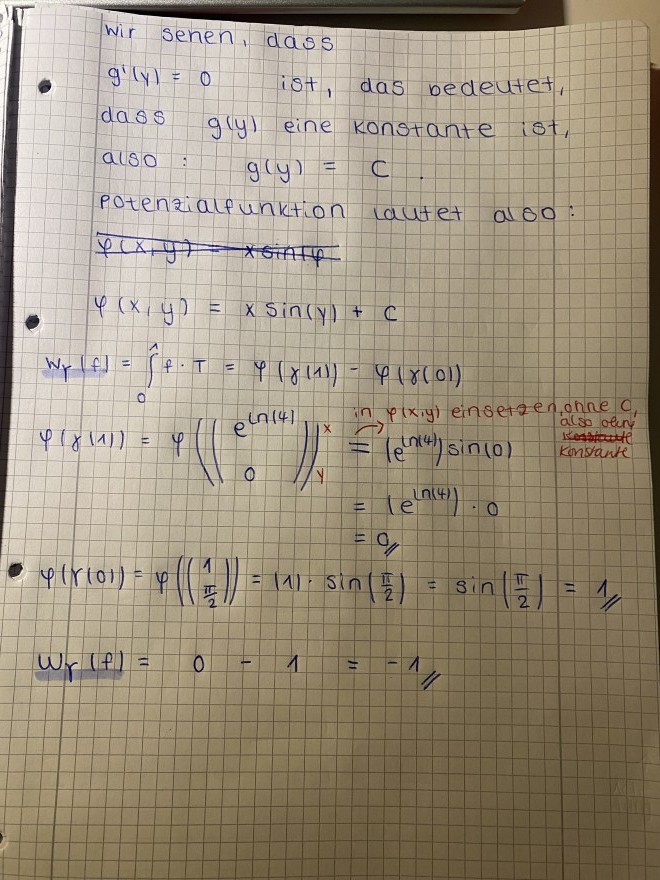 wir sehen, dass
g'(y) = 0 ist, das bedeutet,
dass g(y) eine konstante ist,
also : g(y) = C .
Potenzialfunktion lautet also :
φ(x,y) = x sin(φ
φ(x,y) = x sin(y) + C
Wγ(f) = ∫₀¹ f · T = φ(γ(1)) - φ(γ(0))
in φ(x,y) einsetzen, ohne C,
also ohne
konstante
konstante
φ(γ(1)) = φ((e^ln(4) 0)) x y = (e^ln(4)) sin(0)
= (e^ln(4)) · 0
= 0
φ(γ(0)) = φ((1 π/2)) = (1) · sin(π/2) = sin(π/2) = 1
Wγ(f) = 0 - 1 = -1